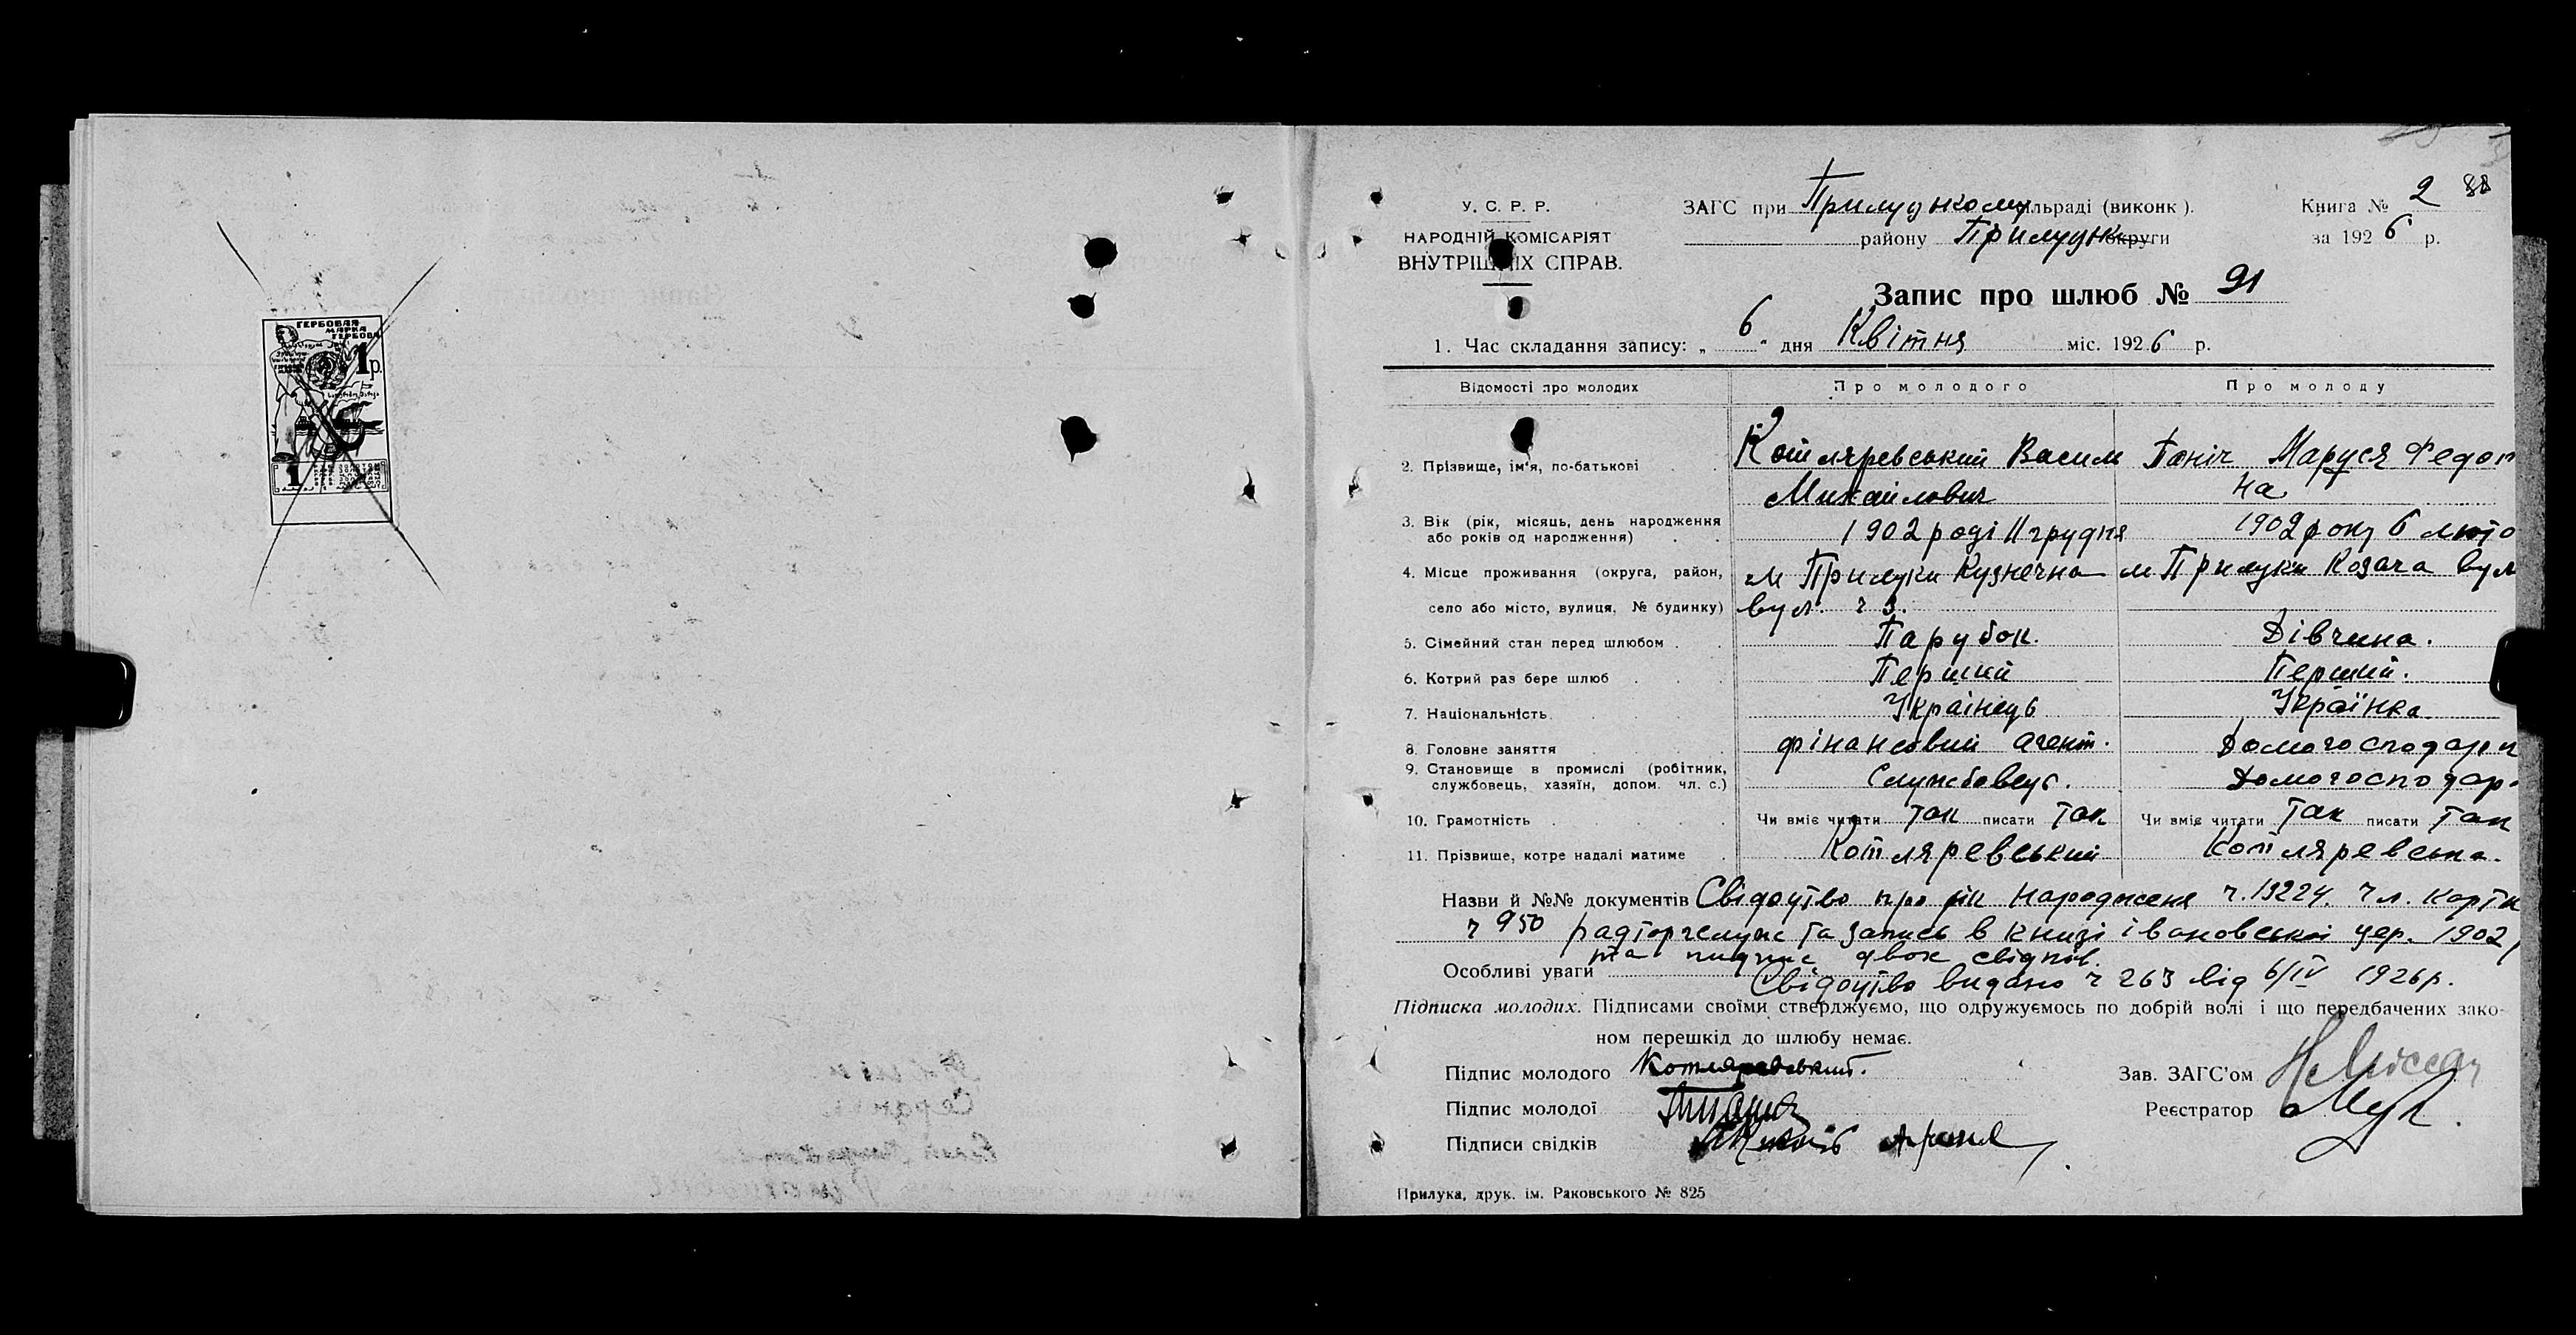 ГЕРБОВАЯ
МАРКА
ГЕРБОВА
1 р.
1
У. С. Р. Р.
НАРОДНІЙ КОМІСАРІЯТ
ВНУТРІШНІХ СПРАВ.
ЗАГС при Прилуцькому сільраді (виконк).
району Прилуцьк округи
Книга № 2
за 1926 р.
Запис про шлюб № 91
1. Час складання запису: „ 6 " дня Квітня міс. 1926 р.
Відомості про молодих Про молодого Про молоду
2. Прізвище, ім'я, по-батькові Котляревський Васил Маруся Федор
Михайлович на
3. Вік (рік, місяць, день народження 1902 році 11 грудня 1902 року 6 люто
або років од народження)
4. Місце проживання (округа, район, м Прилуки Кузнечна м Прилуки Козача вул
село або місто, вулиця, № будинку) вул. ч 3.
5. Сімейний стан перед шлюбом Парубок. Дівчина.
6. Котрий раз бере шлюб Перший Перший.
7. Національність Українець Українка
8. Головне заняття фінансовий агент. Домогосподарк
9. Становище в промислі (робітник, Службовець. Домогосподар.
службовець, хазяїн, допом. чл. с.)
10. Грамотність Чи вміє читати Так писати Так Чи вміє читати Так писати Так
11. Прізвище, котре надалі матиме Котляревський Котляревська.
Назви й №№ документів Свідоцтво про рік народженя ч. 13224. чл. картк
ч 950 радторгслуж та запись в книзі івановської цер. 1902
та підпис двох свідків.
Особливі уваги Свідоцтво видано ч 263 від 6/IV 1926 р.
Підписка молодих. Підписами своїми стверджуємо, що одружуємось по добрій волі і що передбачених зако-
ном перешкід до шлюбу немає.
Підпис молодого Котляревський.
Зав. ЗАГС'ом
Підпис молодої
Реєстратор
Підписи свідків
Прилука, друк. ім. Раковського № 825